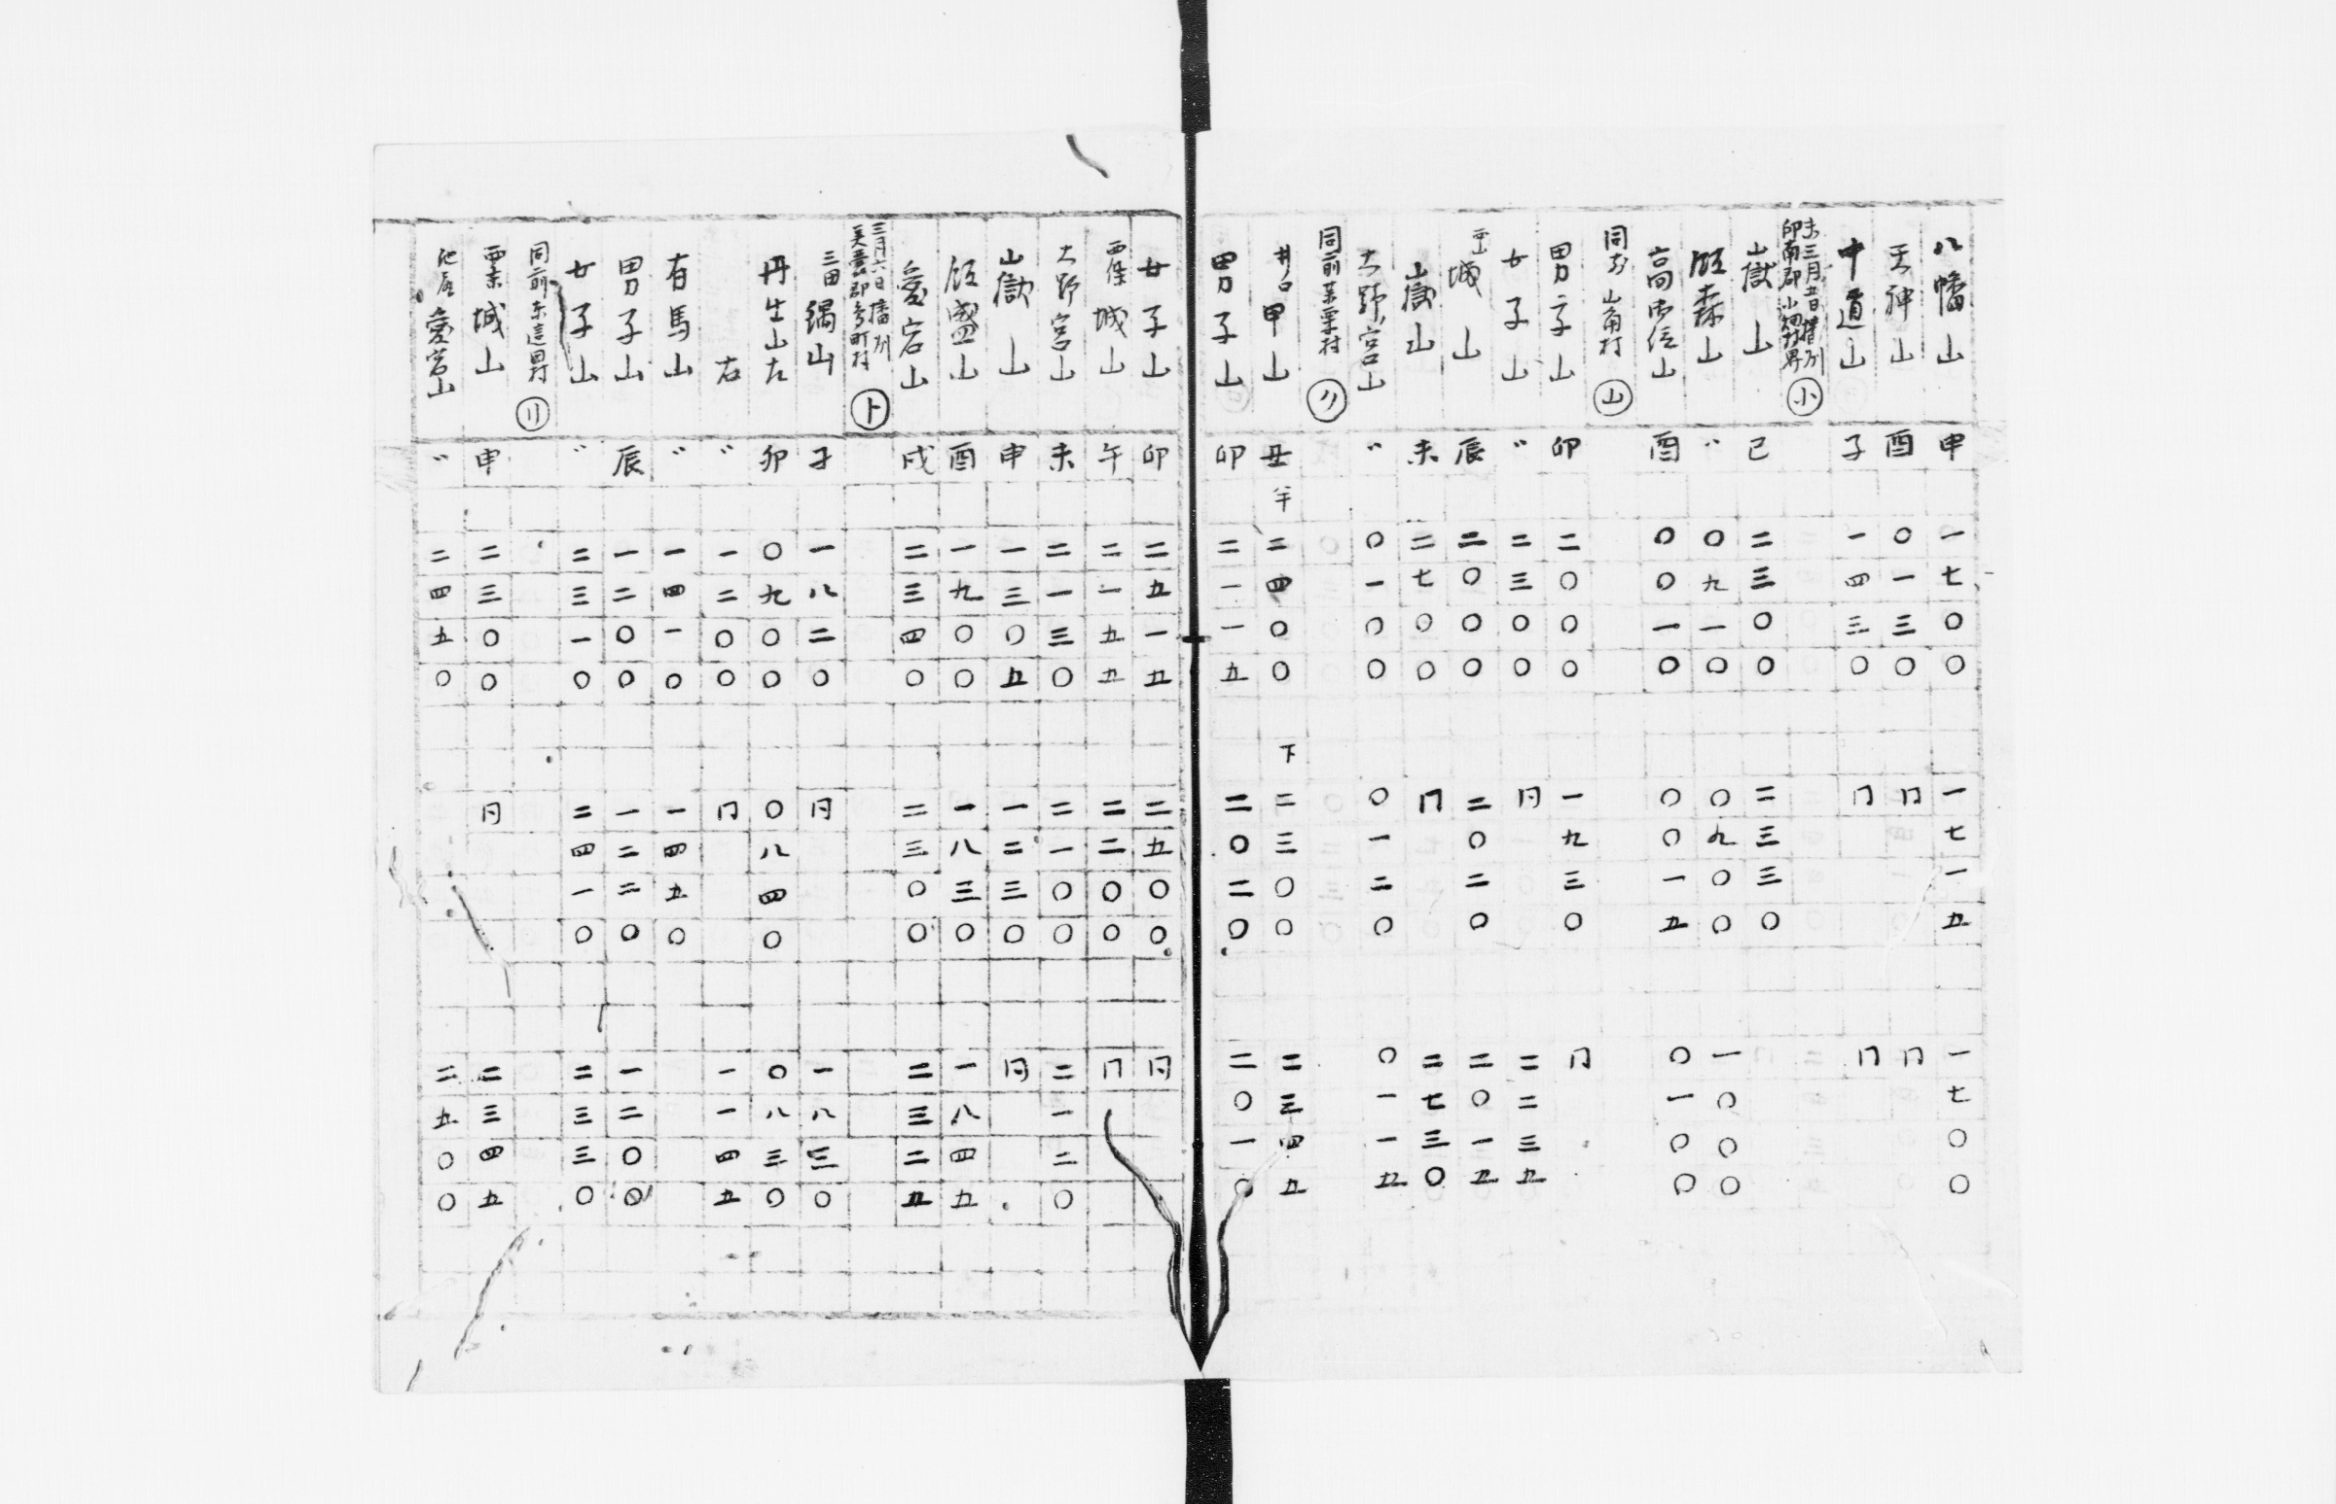 八幡山 申 一七〇〇 一七一五 一七〇〇
天神山 酉 〇一三〇 同 同
中道山 子 一四三〇 同 同
未三月五日播州印南郡小畑村界 小
嶽山 巳 二三〇〇 二三三〇
山 〃 〇九一〇 〇九〇〇 一〇〇〇
高御位山 酉 〇〇一〇 〇〇一五 〇一〇〇
同 山角村 山
男子山 卯 二〇〇〇 一九三〇 同
女子山 〃 二三〇〇 同 二二三五
城山 辰 二〇〇〇 二〇二〇 二〇一五
嶽山 未 二七〇〇 同 二七三〇
大野宮山 〃 〇一〇〇 〇一二〇 〇一一五
同前 栗村
井ノ口 甲山 丑 半 二四〇〇 下 二三〇〇 二三四五
男子山 卯 二一一五 二〇二〇 二〇一〇
女子山 卯 二五一五 二五〇〇 同
西條 城山 午 二一五五 二二〇〇 同
大野宮山 未 二一三〇 二一〇〇 二一二〇
嶽山 申 一三〇五 一二三〇 同
山 酉 一九〇〇 一八三〇 一八四五
愛宕山 戌 二三四〇 二三〇〇 二三二五
三月六日播州美嚢郡 町村 ト
三田 山 子 一八二〇 同 一八三〇
丹生山左 卯 〇九〇〇 〇八四〇 〇八三〇
右 〃 一二〇〇 同 一一四五
有馬山 〃 一四一〇 一四五〇
男子山 辰 一二〇〇 一二二〇 一二〇〇
女子山 〃 二三一〇 二四一〇 二三三〇
同前 村 リ
城山 申 二三〇〇 同 二三四五
愛宕山 〃 二四五〇 二五〇〇